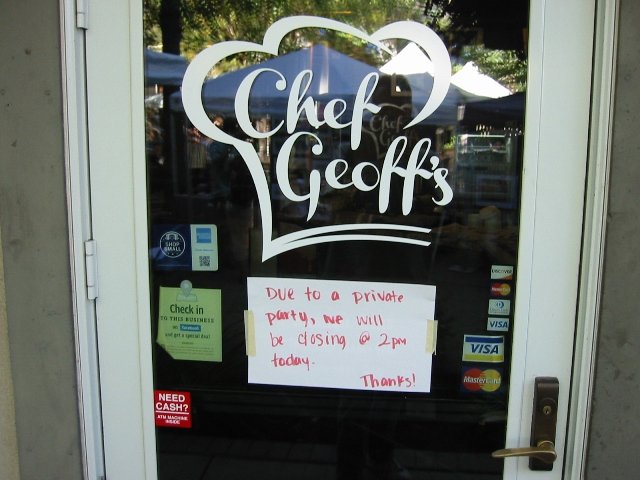 Chef
Geoff's
SHOP
SMALL
Check in
TO THIS BUSINESS
on facebook
and get a special deal!
Due to a private
party, we will
be closing @ 2pm
today.
Thanks!
NEED
CASH?
ATM MACHINE
INSIDE
DISCOVER
MasterCard
VISA
VISA
MasterCard